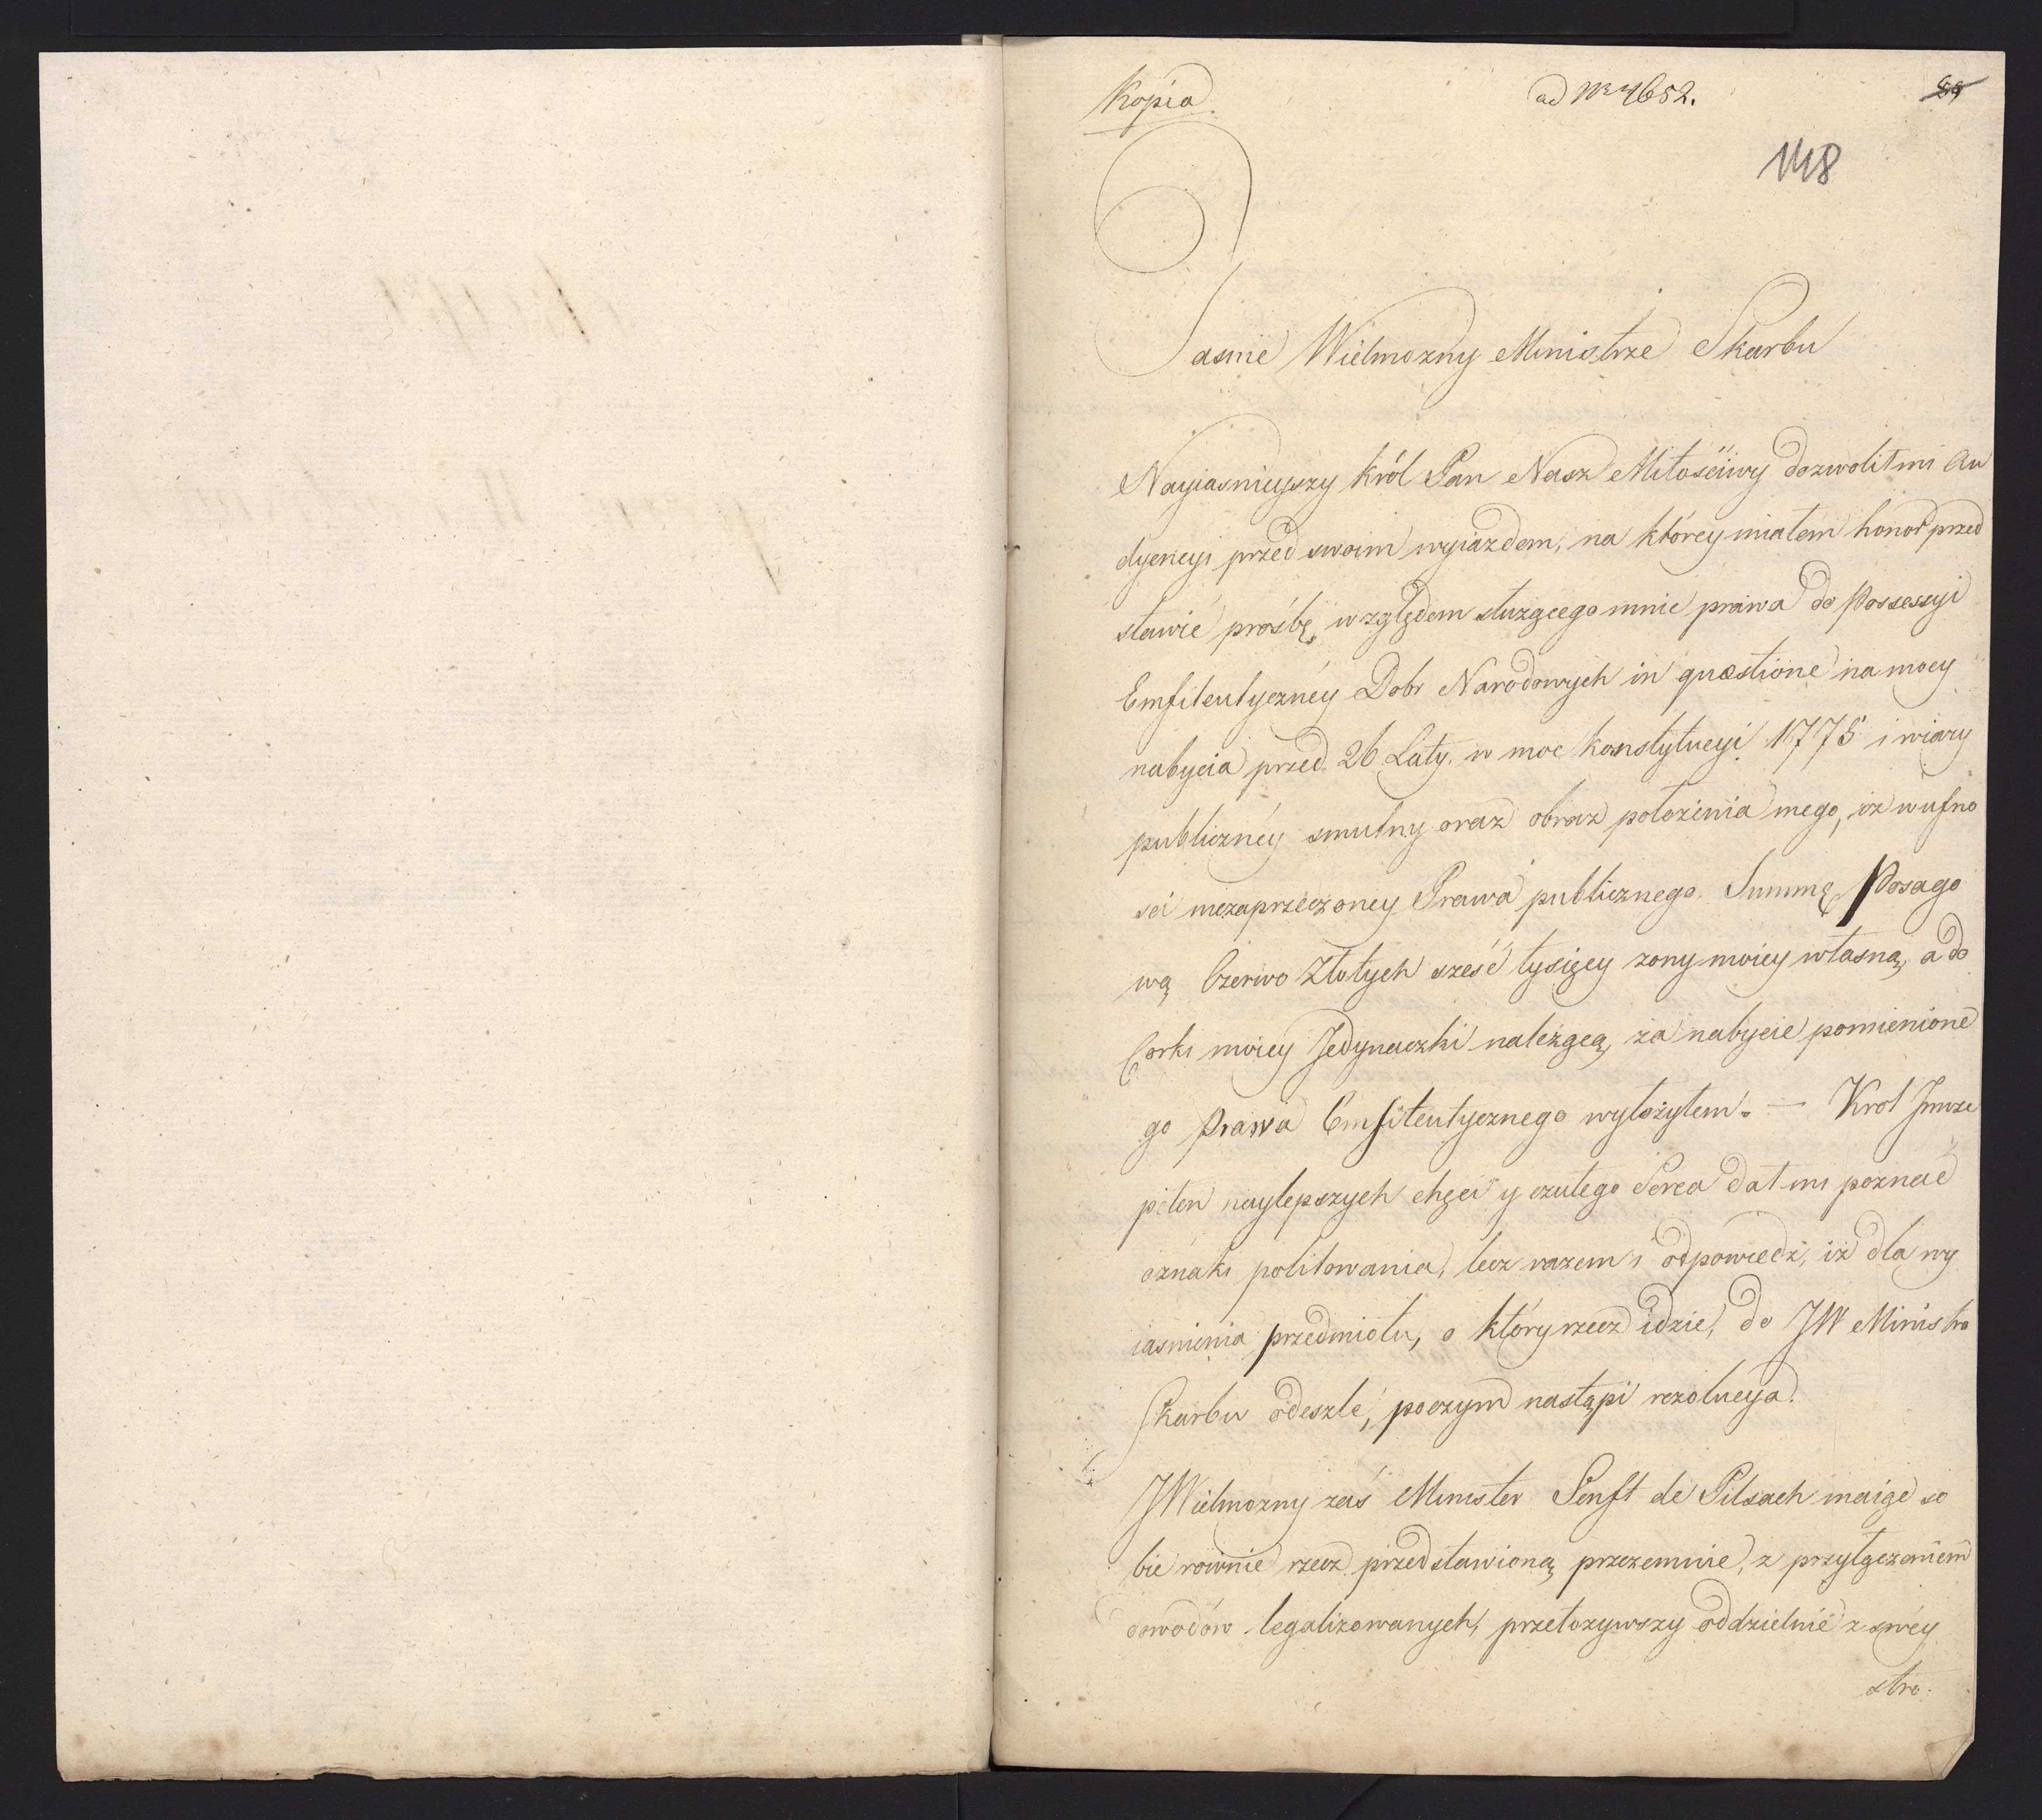 Kopia
ad Nr 4652.
89
148
Jasnie Wielmozny Ministrze Skarbu
Nayiasnieyszy Król Pan Nasz Miłościwy dozwolił mi Au
dyencyi przed swoim wyiazdem, na którey miałem honor przed
stawić prośbę, względem służącego mnie prawa do Possessyi
Emfiteutycznéy Dobr Narodowych in quæstione na mocy
nabycia przed 26 Laty, w moc Konstytucyi 1775 i wiary
publicznéy smutny oraz obraz położenia mego, iż w ufno
sci niezaprzeczoney Prawa publicznego. Summę Posago
wą Czerwo Złotych sześć tysięcy zony moiey własną, a do
Corki moiey Jedynaczki należącą, za nabycie pomienione
go Prawa Emfiteutycznego wyłożyłem. — Krol Jmsc
pełen naylepszych chęci y czułego Serca dał mi poznać
oznaki politowania, lecz razem i odpowiedź, iż dla wy
iasnienia przedmiotu, o który rzecz idzie, do JW Ministra
Skarbu odeszle, poczym nastąpi rezolucya.
JWielmozny zaś Minister Senft de Pilsach maiąc so
bie rownie rzecz przedstawioną przezemnie, z przyłączeniem
dowodów legalizowanych, przełożywszy oddzielnie z swéy
stro.